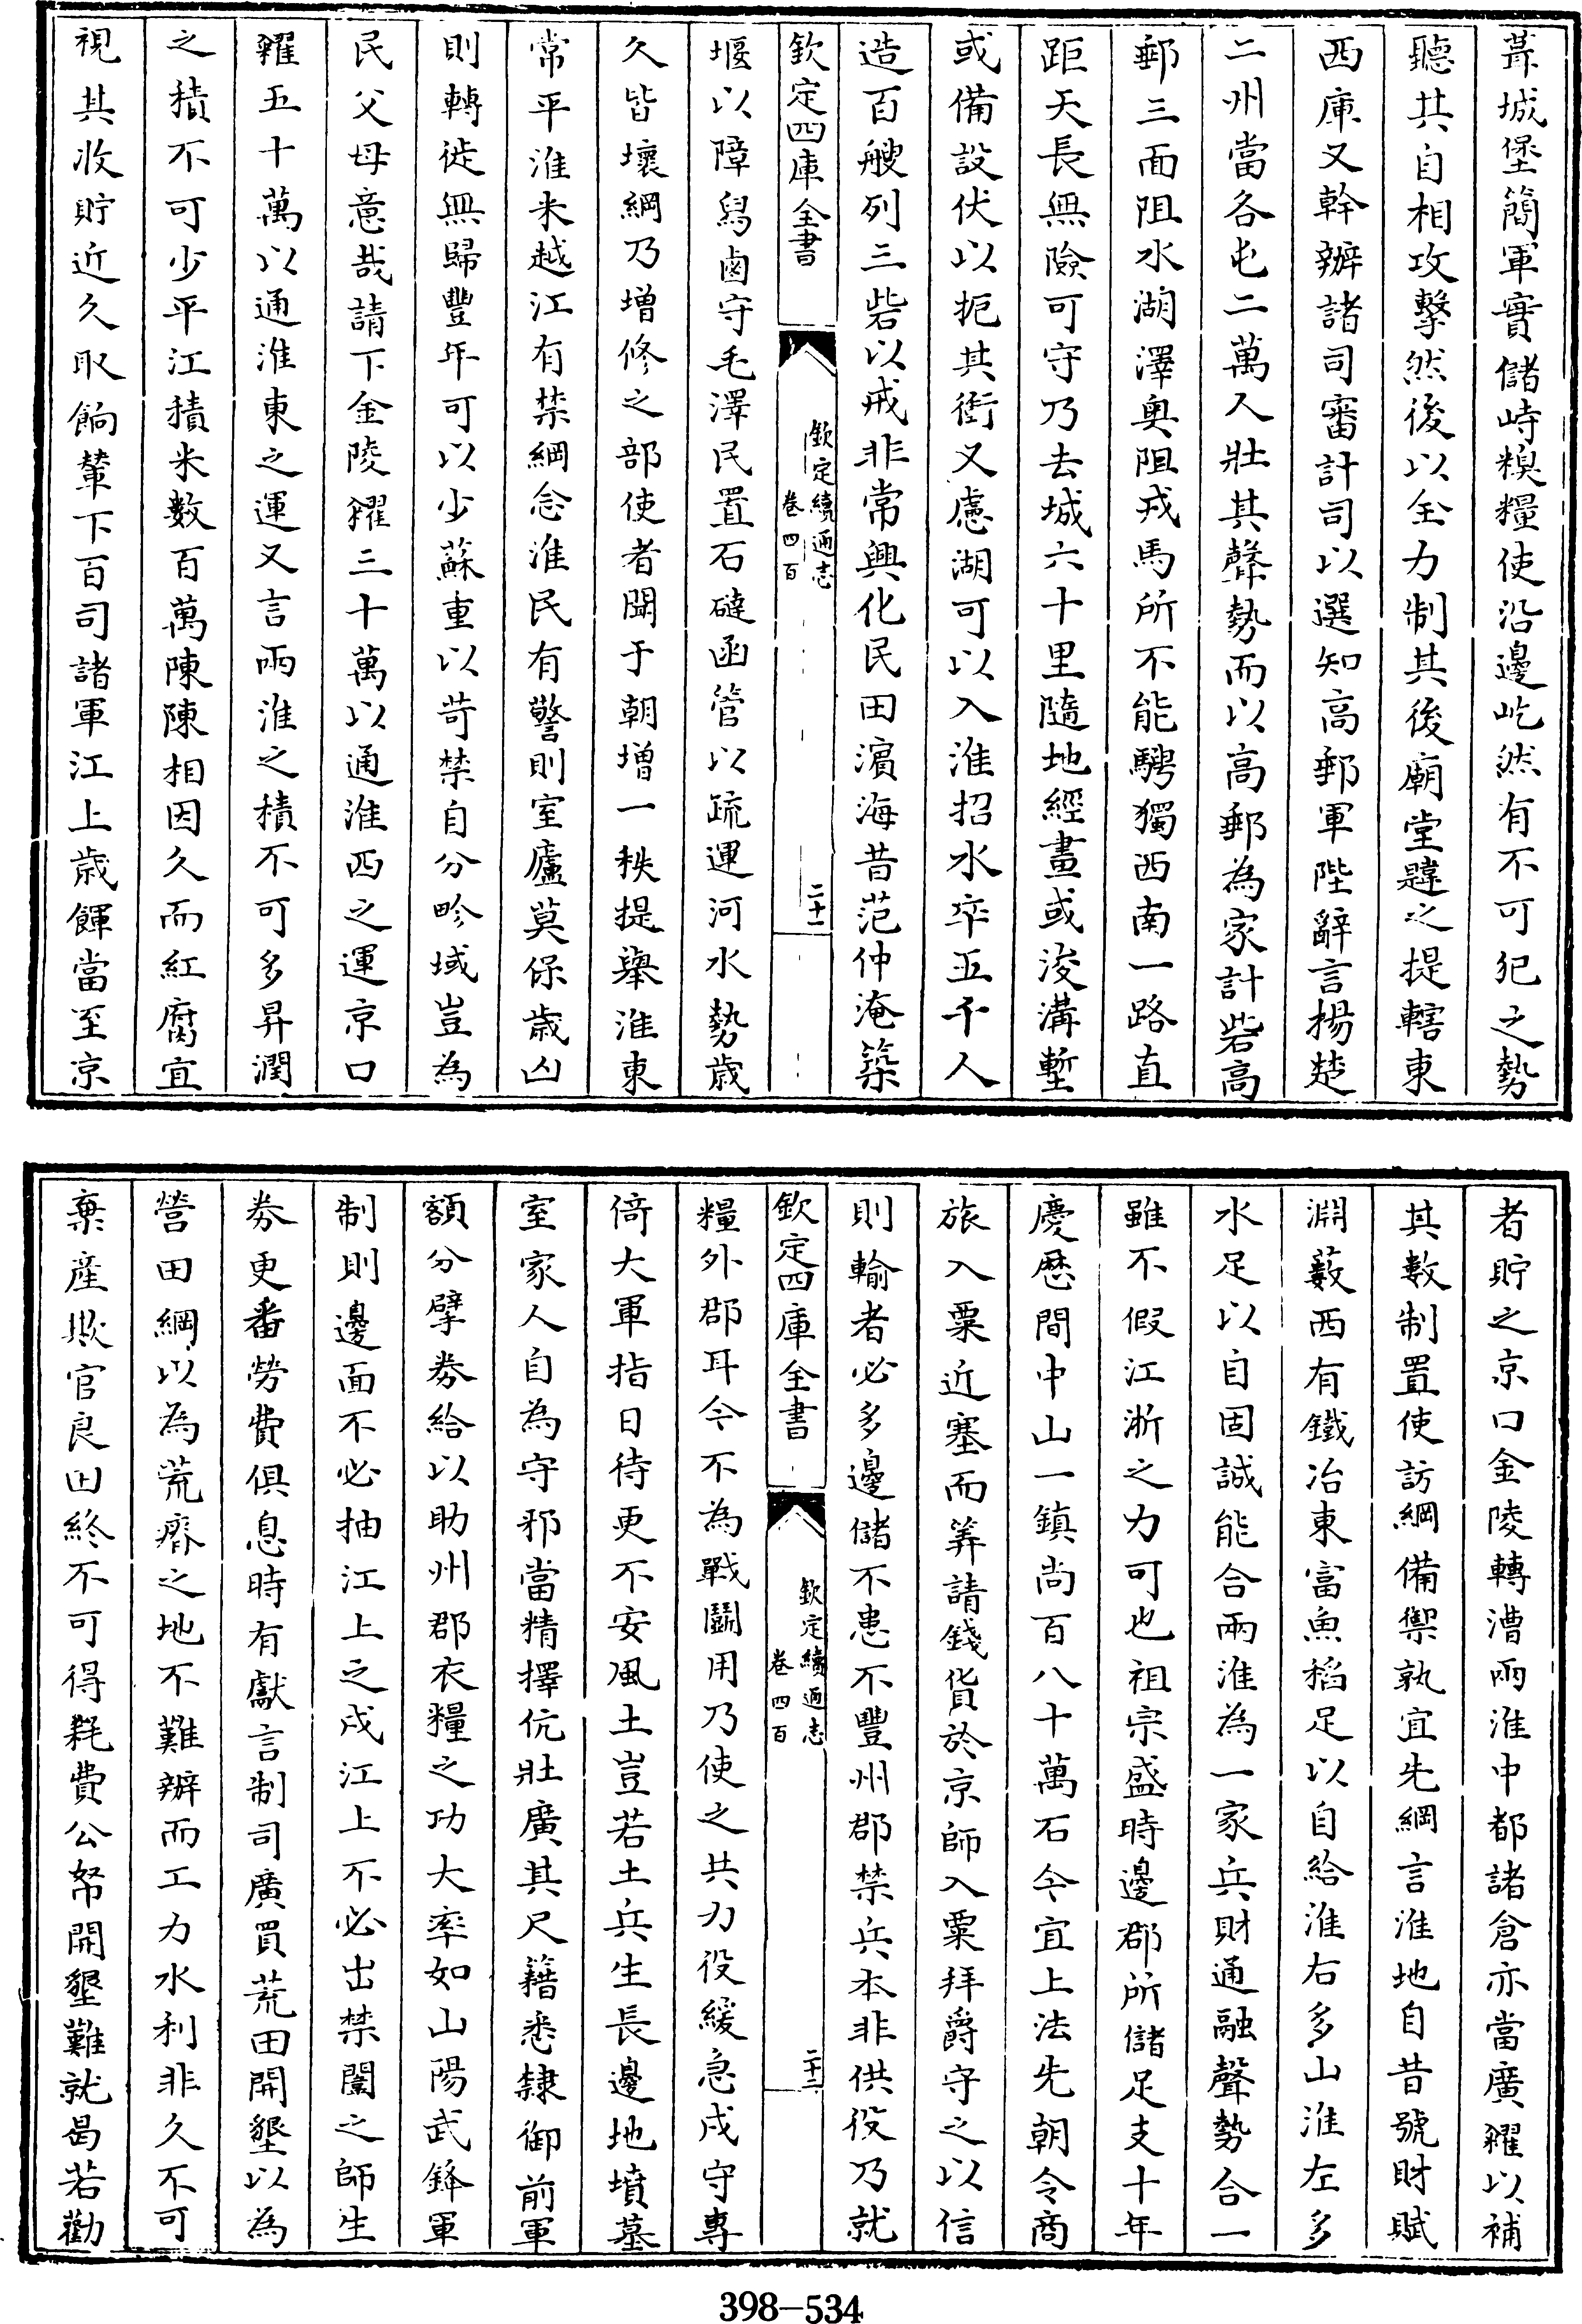 葺城堡簡軍實儲峙糗糧使沿邊屹然有不可犯之勢
聽其自相攻擊然後以全力制其後廟堂韙之提轄東
西庫又幹辦諸司審計司以選知高郵軍陛辭言揚楚
二州當各屯二萬人壯其聲勢而以高郵為家計砦高
郵三面阻水湖澤奥阻戎馬所不能騁獨西南一路直
距天長無險可守乃去城六十里隨地經畫或浚溝塹
或備設伏以扼其衝又慮湖可以入淮招水卒五千人
造百艘列三砦以戒非常興化民田濵海昔范仲淹築
欽定四庫全書
欽定續通志
卷四百
二十一
堰以障舄鹵守毛澤民置石䃮函管以疏運河水勢歲
久皆壞綱乃增修之部使者聞于朝增一秩提舉淮東
常平淮米越江有禁綱念淮民有警則室廬莫保歲凶
則轉徙無歸豐年可以少蘇重以苛禁自分畛域豈為
民父母意哉請下金陵糴三十萬以通淮西之運京口
糴五十萬以通淮東之運又言兩淮之積不可多昇潤
之積不可少平江積米數百萬陳陳相因久而紅腐宜
視其收貯近久取餉輦下百司諸軍江上歲餫當至京
者貯之京口金陵轉漕兩淮中都諸倉亦當廣糴以補
其數制置使訪綱備禦孰宜先綱言淮地自昔號財賦
淵藪西有鐵冶東富魚稻足以自給淮右多山淮左多
水足以自固誠能合兩淮為一家兵財通融聲勢合一
雖不假江浙之力可也祖宗盛時邊郡所儲足支十年
慶歷間中山一鎮尚百八十萬石今宜上法先朝令商
旅入粟近塞而筭請錢貨於京師入粟拜爵守之以信
則輸者必多邊儲不患不豐州郡禁兵本非供役乃就
欽定四庫全書
欽定續通志
卷四百
二十二
糧外郡耳今不為戰鬭用乃使之共力役緩急戍守專
倚大軍指日待更不安風土豈若土兵生長邊地墳墓
室家人自為守邪當精擇伉壯廣其尺籍悉隸御前軍
額分擘券給以助州郡衣糧之功大率如山陽武鋒軍
制則邊面不必抽江上之戍江上不必出禁闥之師生
券更番勞費俱息時有獻言制司廣買荒田開墾以為
營田綱以為荒瘠之地不難辦而工力水利非久不可
棄產欺官良田終不可得耗費公帑開墾難就曷若勸
398-534